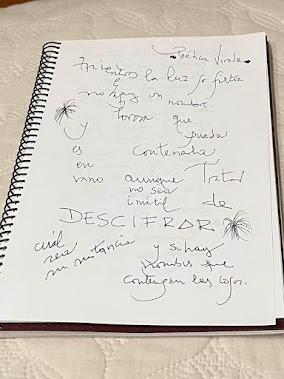 Poética Virale
la luz se filtra
no hay un nombre
y
forma que
pueda
es contenerla
en
vano aunque Tratar
no sea
inútil de
DESCIFRAR
cuál
sea
su sustancia
y si hay
nombres que
contengan las cosas.